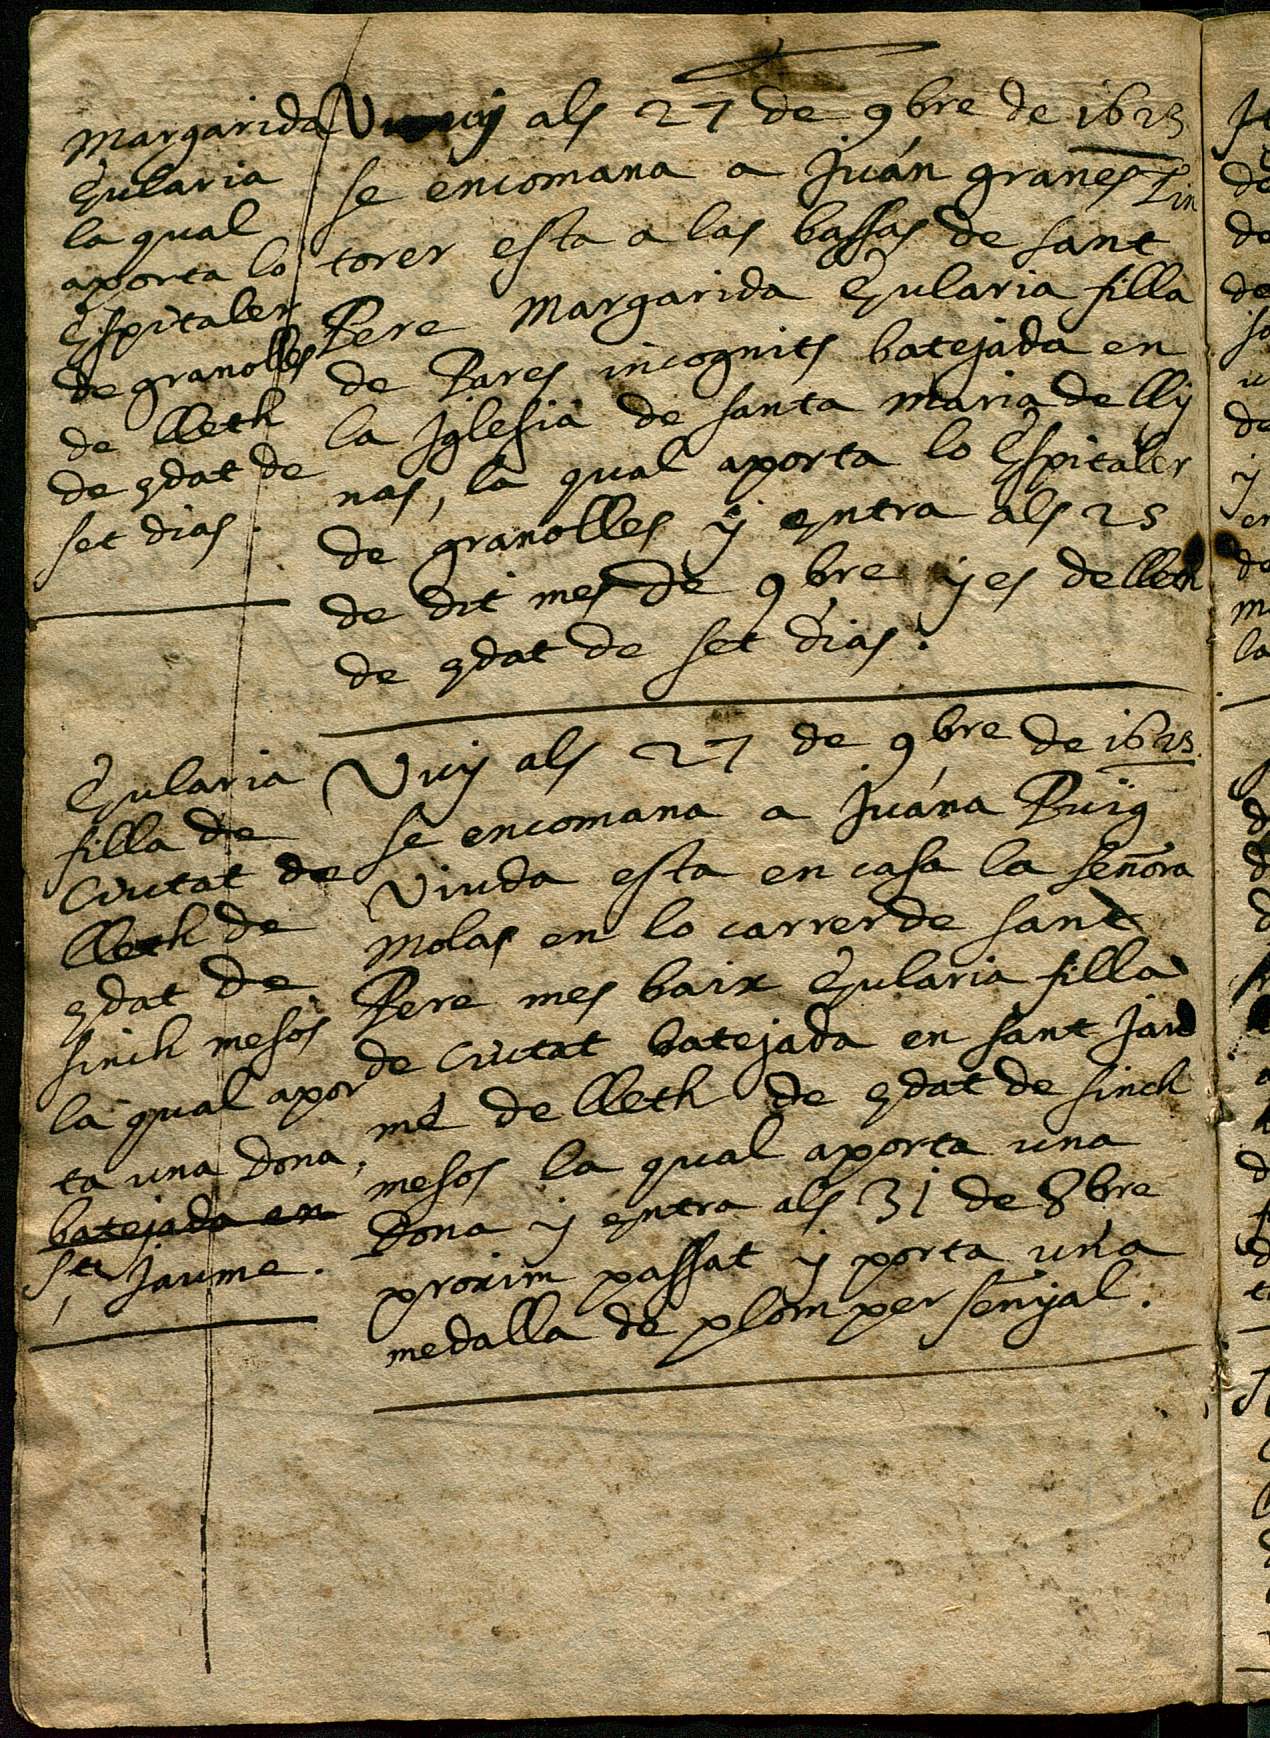 Margarida
Eularia
la qual
aporta lo
Espitaler
de granolles
de lleth
de edat de
set dias.
Vuy als 27 de 9bre de 1623
se encomana a Juán granes Tin
torer esta a las bassas de sant
Pere Margarida Eularia filla
de Pares incognits batejada en
la Iglesia de santa maria de lly
nas, la qual aporta lo Espitaler
de granolles y entra als 25
de dit mes de 9bre y es de lleth
de edat de set dias.
Eularia
filla de
Ciutat de
lleth de
edat de
sinch mesos
la qual apor
ta una dona,
batejada en
St Jaume.
Vuy als 27 de 9bre de 1623.
se encomana a Juána Puig
Viuda esta en casa la señora
Molas en lo carrer de sant
Pere mes baix Eularia filla
de Ciutat batejada en sant Jau
me de lleth de edat de sinch
mesos la qual aporta una
Dona y entra als 31 de 8bre
proxim passat y porta una
medalla de plom per señyal.